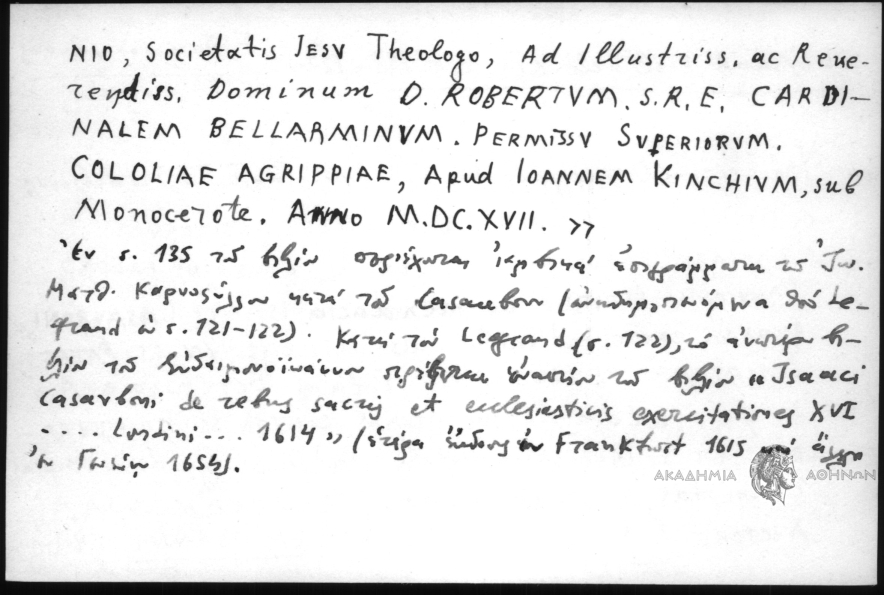 NIO, Societatis JESV Theologo, Ad Illustriss. ac Reue-
rendiss. Dominum D. ROBERTVM. S.R.E. CARDI-
NALEM BELLARMINVM. PERMISSV SVPERIORVM.
COLOLIAE AGRIPPIAE, Apud IOANNEM KINCHIVM, sub
Monocerote. ANNO M.DC.XVII. »
Ἐν σ. 135 τοῦ βιβλίου περιέχονται ἰαμβικά ἐπιγράμματα τοῦ Ἰω.
Ματθ. Καρυοφύλλου κατά τοῦ Casaubon (ἀναδημοσιευόμενα ὑπό Le-
grand ἐν σ. 121-122). Κατά τόν Legrand (σ. 122), τό ἀνωτέρω βι-
βλίον τοῦ Εὐδαιμονοϊωάννου στρέφεται ἐναντίον τοῦ βιβλίου « Isaaci
Casauboni de rebus sacris et ecclesiasticis exercitationes XVI
.... Londini... 1614 » (ἑτέρα ἔκδοσις ἐν Frankfurt 1615 καί ἄλλη
ἐν Γενεύῃ 1654).
ΑΚΑΔΗΜΙΑ ΑΘΗΝΩΝ